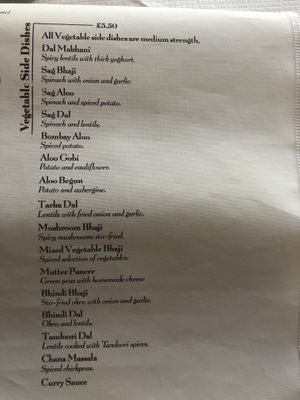 Vegetable Side Dishes
£5.50
All Vegetable side dishes are medium strength.
Dal Makhani
Spicy lentils with thick yoghurt.
Sag Bhaji
Spinach with onion and garlic.
Sag Aloo
Spinach and spiced potato.
Sag Dal
Spinach and lentils.
Bombay Aloo
Spiced potato.
Aloo Gobi
Potato and cauliflower.
Aloo Begun
Potato and aubergine.
Tarka Dal
Lentils with fried onion and garlic.
Mushroom Bhaji
Spicy mushrooms stir-fried.
Mixed Vegetable Bhaji
Spiced selection of vegetables.
Mutter Paneer
Green peas with homemade cheese
Bhindi Bhaji
Stir-fried okra with onion and garlic.
Bhindi Dal
Okra and lentils.
Tandoori Dal
Lentils cooked with Tandoori spices.
Chana Massala
Spiced chickpeas.
Curry Sauce